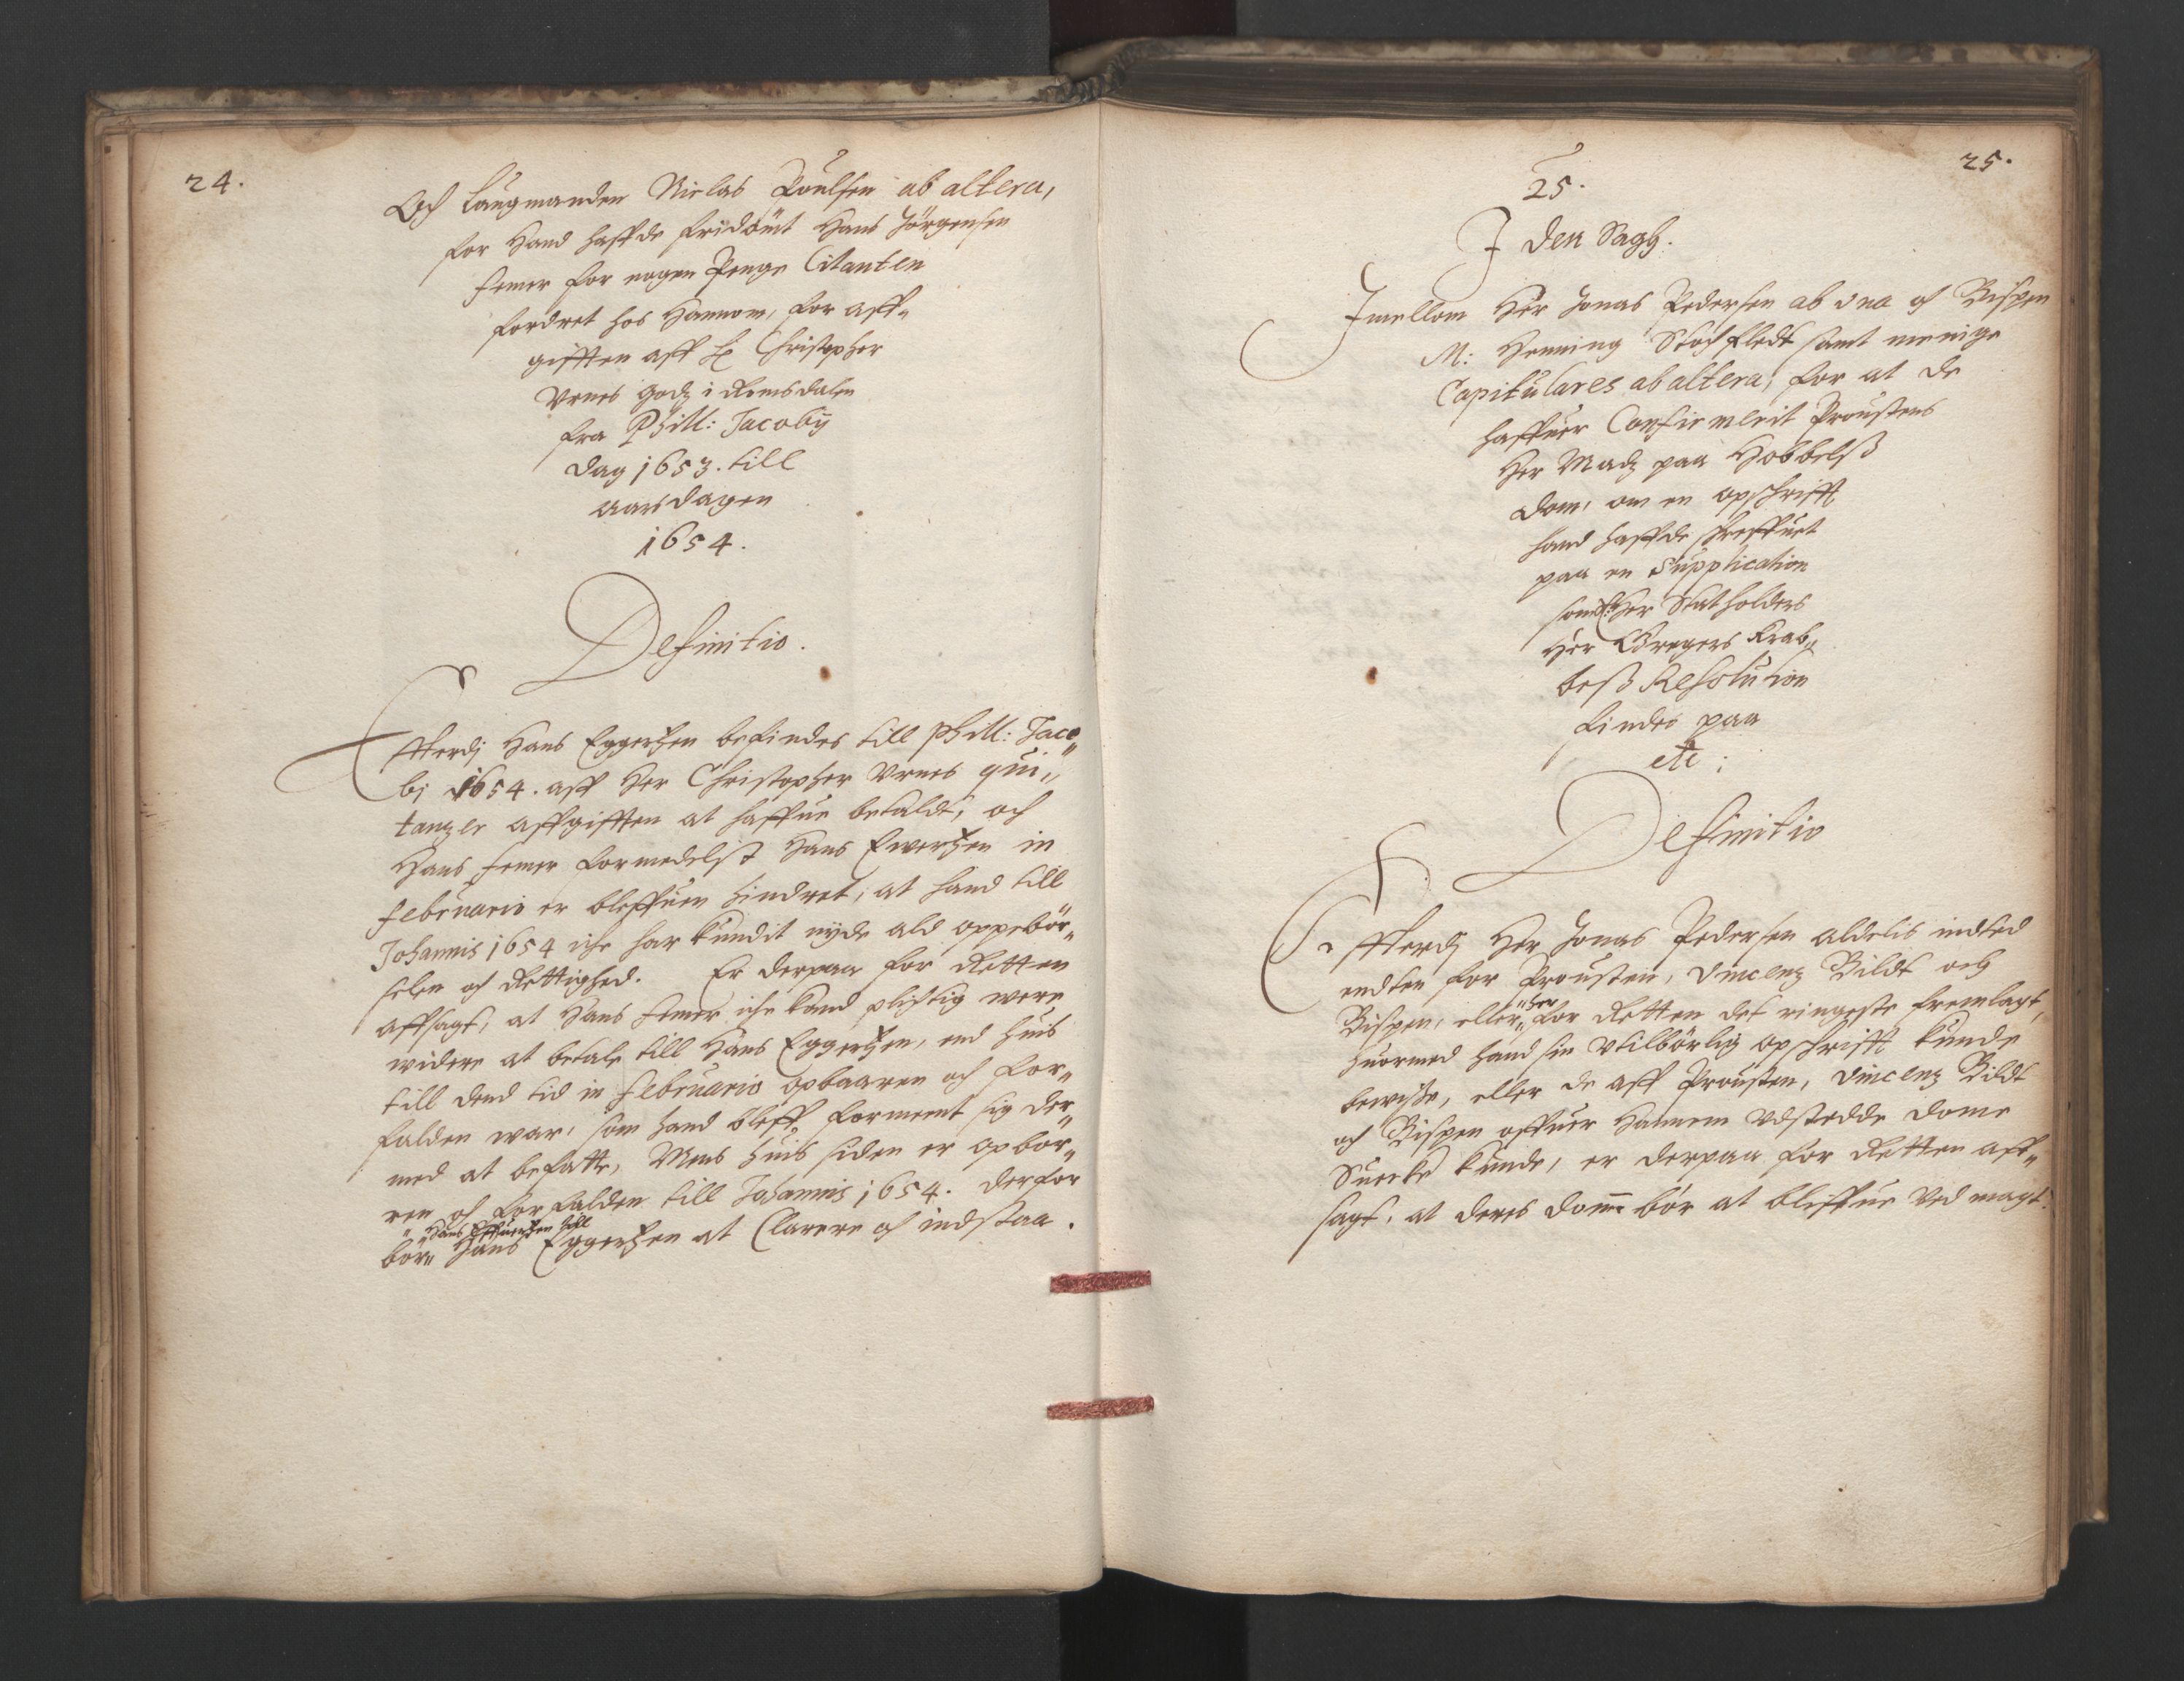 24.
Och Laugmanden Niclas Poulsen ab altera,
for Hand haffde fridömt Hans Jörgensen
femer for nogen Penge Citanten
fordret hos Hannom, for aff„
gifften aff H Christopher
Vrnes Godz i Romsdalen
fra Phill: Jacobij
Dag 1653. till
aarsdagen
1654.
Definitio.
Effterdj Hans Eggertzen befindes till Phill: Jaco„
bj 1654. aff Her Christopher Vrnes qui„
tanzer affgifften at haffue betaldt, och
Hans femer formedelst Hans Ewertzen in
februario er bleffuen hindret, at hand till
Johannis 1654 iche har kundit nyde ald oppebör„
selen och Rettighed. Er derpaa for Retten
affsagt, at Hans femer iche kand plichtig were
widere at betale till Hans Eggertzen, end huis
till dend tid in februario opbaaren och for„
falden war, som hand bleff formeent sig der„
med at befatte, Mens huis siden er opbor„
ren och forfalden till Johannis 1654. derfor
„ Hans Effuertzen till
bör„ Hans Eggertzen at Clarere och indstaa.
25.
25.
I Den Sagh.
Imellom Her Jonas Pedersen ab una och Bispen
M: Henning Stochfledt samt menige
Capitulares ab altera, for at de
haffuer Confirmerit Proustens
Her Madz paa Hobbelß
Dom, om en opschrifft
hand haffde schreffuet
paa en Supplication
som Her Statholders
Her Gregers Krab„
beß Resolution
findes paa
etc:
Definitio
Effterdj Her Jonas Pedersen aldelis indted
endten for Prousten, Vincenz Bildt och
Bispen, eller „her„ for Retten det ringeste fremlagt,
huormed hand sin Vtilbörlig opschrifft kunde
bewisse, eller de aff Prousten, Vincenz Bildt
och Bispen offuer Hannem Vdstedde Domme
Suecke kunde, er derpaa for Retten aff„
sagt, at deres Domme bör at bliffue Ved magt.